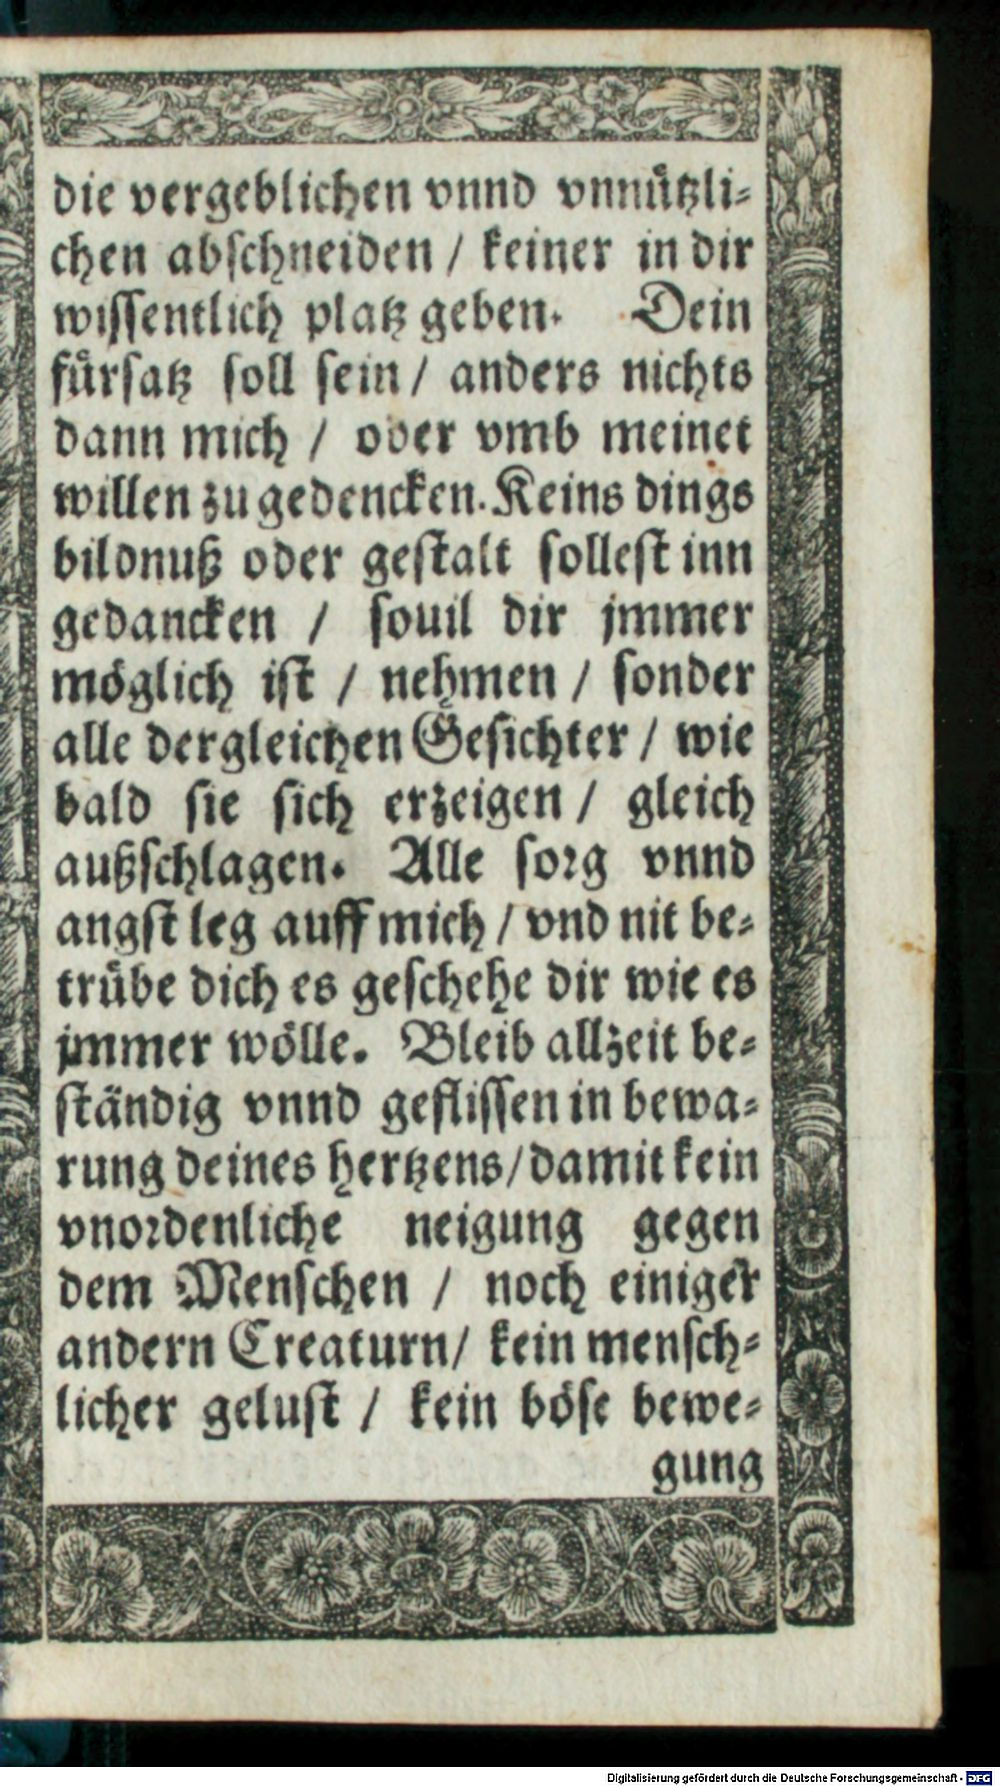 die vergeblichen vnnd vnnützli-
chen abschneiden / keiner in dir
wissentlich platz geben. Dein
fürsatz soll sein / anders nichts
dann mich / oder vmb meinet
willen zu gedencken. Keins dings
bildnuß oder gestalt sollest inn
gedancken / souil dir jmmer
möglich ist / nehmen / sonder
alle dergleichen Gesichter / wie
bald sie sich erzeigen / gleich
außschlagen. Alle sorg vnnd
angst leg auff mich / vnd nit be-
trübe dich es geschehe dir wie es
jmmer wölle. Bleib allzeit be-
ständig vnnd geflissen in bewa-
rung deines hertzens / damit kein
vnordenliche neigung gegen
dem Menschen / noch einiger
andern Creaturn / kein mensch-
licher gelust / kein böse bewe-
gung
Digitalisierung gefördert durch die Deutsche Forschungsgemeinschaft - DFG